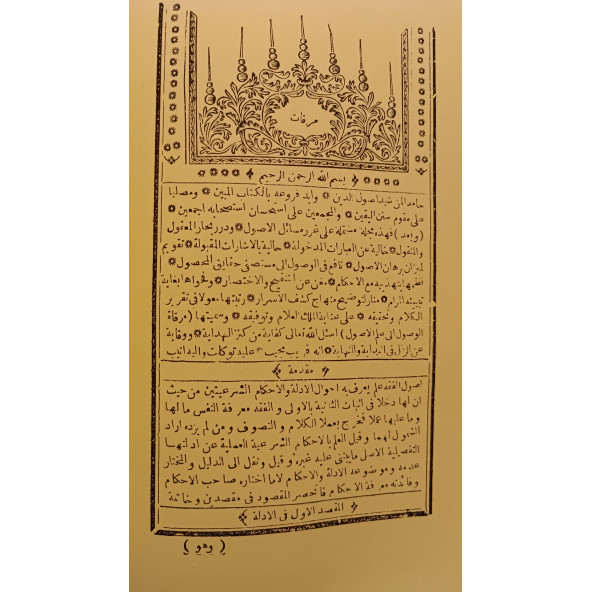 مرقات
بسم الله الرحمن الرحيم
حامدا لمن شيد اصول الدين * وايد فروعه بالكتاب المبين * ومصليا
على مقوم سنن اليقين * والمجمعين على استحسان استصحابه اجمعين *
(وبعد) فهذه مجلة مشتملة على غرر مسائل الاصول * ودرر بحار المعقول
والمنقول * خالية عن العبارات المدخولة * حالية بالاشارات المقبولة * تقويم
لميزان برهان الاصول * نافع فى الوصول الى مستصفى حقايق المحصول *
نظمها بتهذيب مع الاحكام * مغن عن التنقيح والاختصار * وفحواها بغاية
تبيينه المرام * منار لتوضيح منهاج كشف الاسرار * رتبتها معولا فى تقرير
الكلام وتحقيقه * على عناية الملك العلام وتوفيقه * وسميتها (مرقاة
الوصول الى علم الاصول) اسئل الله تعالى كفاية من كنز الهداية * ووقاية
عن الزلل فى البداية والنهاية * انه قريب مجيب * عليه توكلت واليه انيب
مقدمة
اصول الفقه علم يعرف به احوال الادلة والاحكام الشرعيتين من حيث
ان لها دخلا فى اثبات الثانية بالاولى و الفقه معرفة النفس مالها
وما عليها عملا فخرج بعملا الكلام و التصوف و من لم يزده اراد
الشمول لهما و قيل العلم بالاحكام الشرعية العملية عن ادلتها
التفصيلية الاصل ما يبتنى عليه غيره و قيل ونقل الى الدليل و المختار
عدمه وموضوعه الادلة والاحكام لا ما اختاره صاحب الاحكام
و فائدته معرفة الاحكام فانحصر المقصود فى مقصدين و خاتمة
المقصد الاول فى الادلة
(وهو)